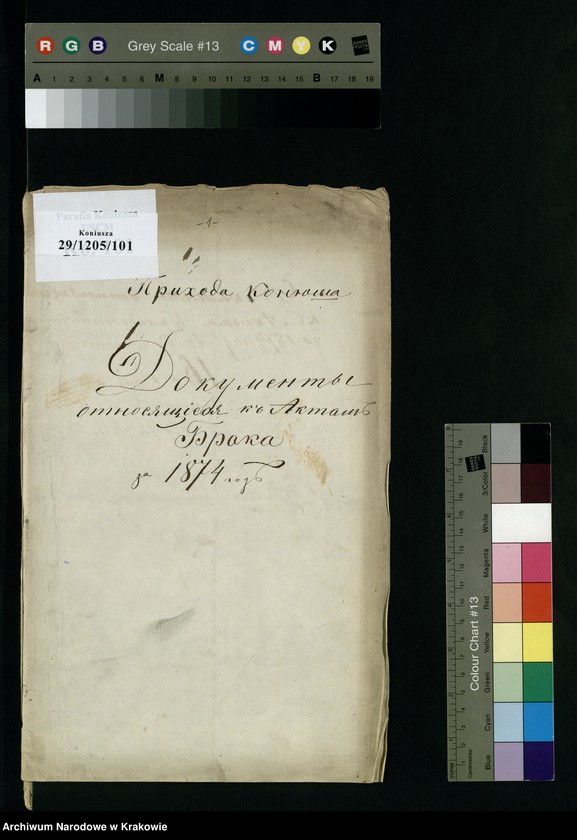 R G B Grey Scale #13 C M Y K
A 1 2 3 4 5 6 M 8 9 10 11 12 13 14 15 B 17 18 19
Parafia Koniusza
Koniusza
29/1205/101
-1-
Прихода Конюша
Документы
относящіеся къ Актамъ
Брака
за 1874 годъ
Colour Chart #13
Black
3/Color
White
Magenta
Red
Yellow
Green
Cyan
Blue
Centimetres
Inches
Archiwum Narodowe w Krakowie